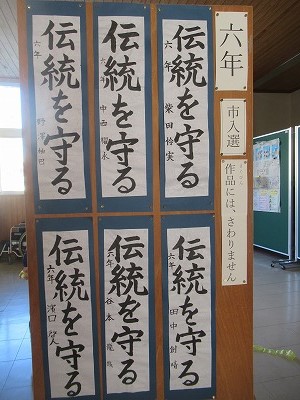 六年
市入選
作品には、さわりません
さくひん
伝統を守る
六年 柴田怜実
伝統を守る
六年 中西
伝統を守る
六年
伝統を守る
六年 田中
伝統を守る
六年 谷本
伝統を守る
六年 濱口